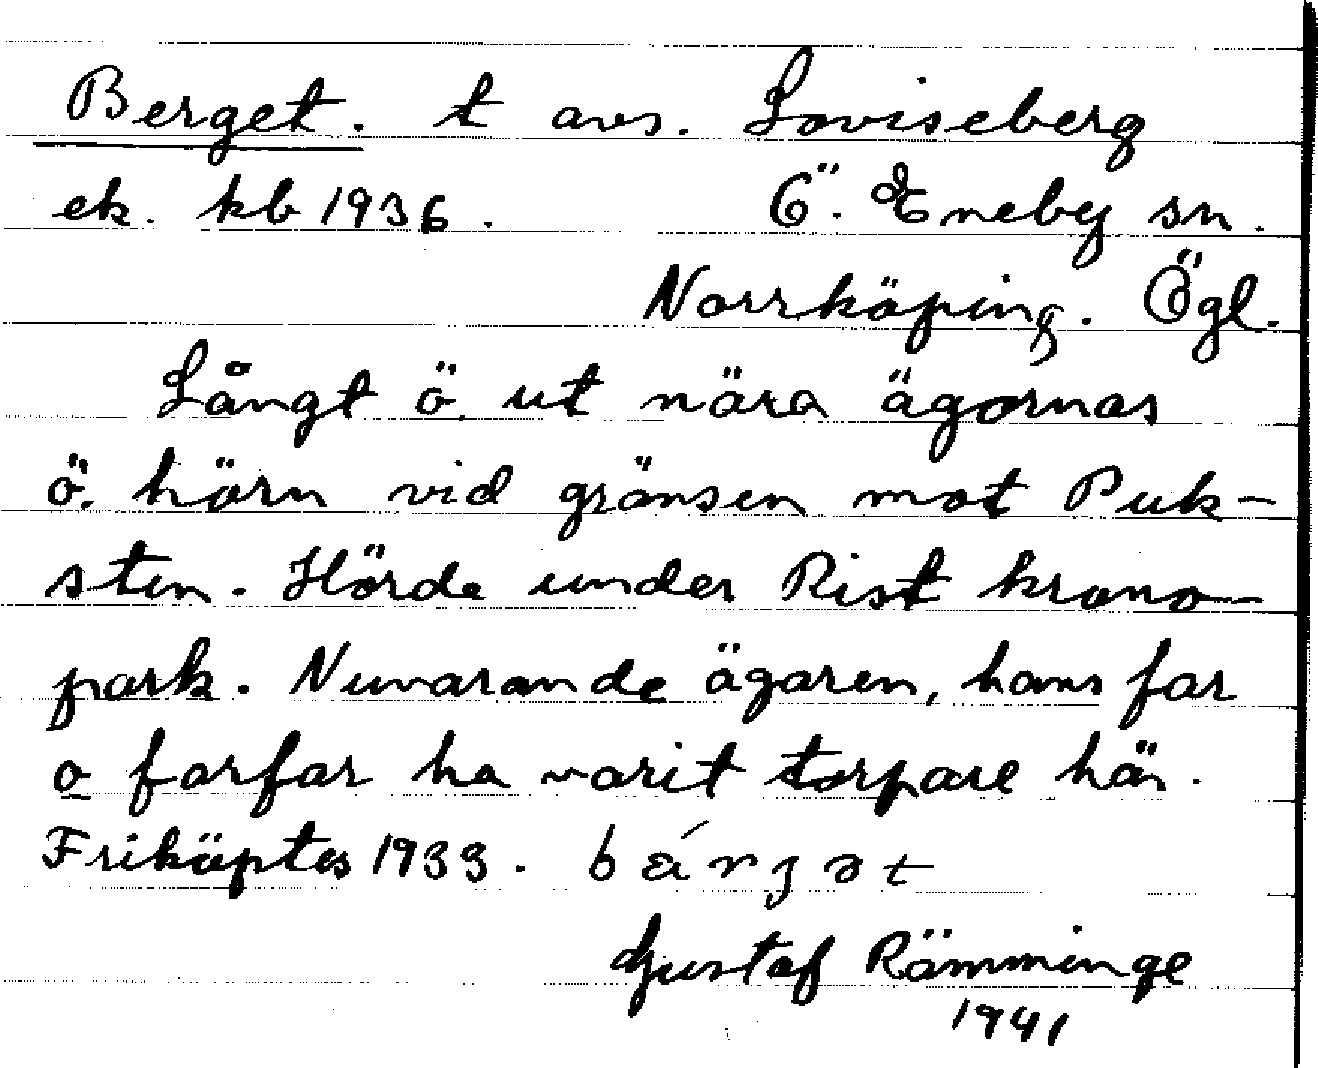 Berget. t avs. Loviseberg
ek. kb 1936. Ö. Eneby sn.
Norrköping. Ögl.
Långt ö. ut nära ägornas
ö. hörn vid gränsen mot Puk-
sten. Hörde under Rist krono-
park. Nuvarande ägaren, hans far
o farfar ha varit torpare här.
Friköptes 1933. bárʒət
Gustaf Rämminge
1941